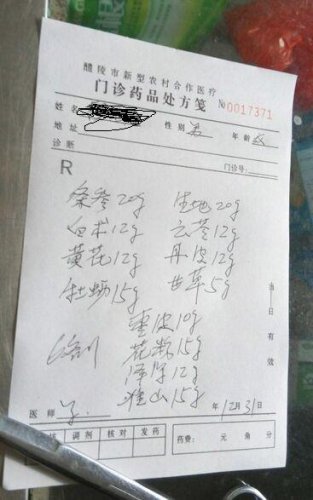 醴陵市新型农村合作医疗
门诊药品处方笺 №0017371
姓名 性别 男 年龄
地址
诊断 门诊号:
R
条参20g 生地20g
白术12g 云苓12g
黄花12g 丹皮12g
牡蛎15g 甘草5g
 皮10g
花粉15g
泽泻12g
淮山15g
当日有效
医师 年12月31日
调剂 核对 发药 药费: 元 角 分